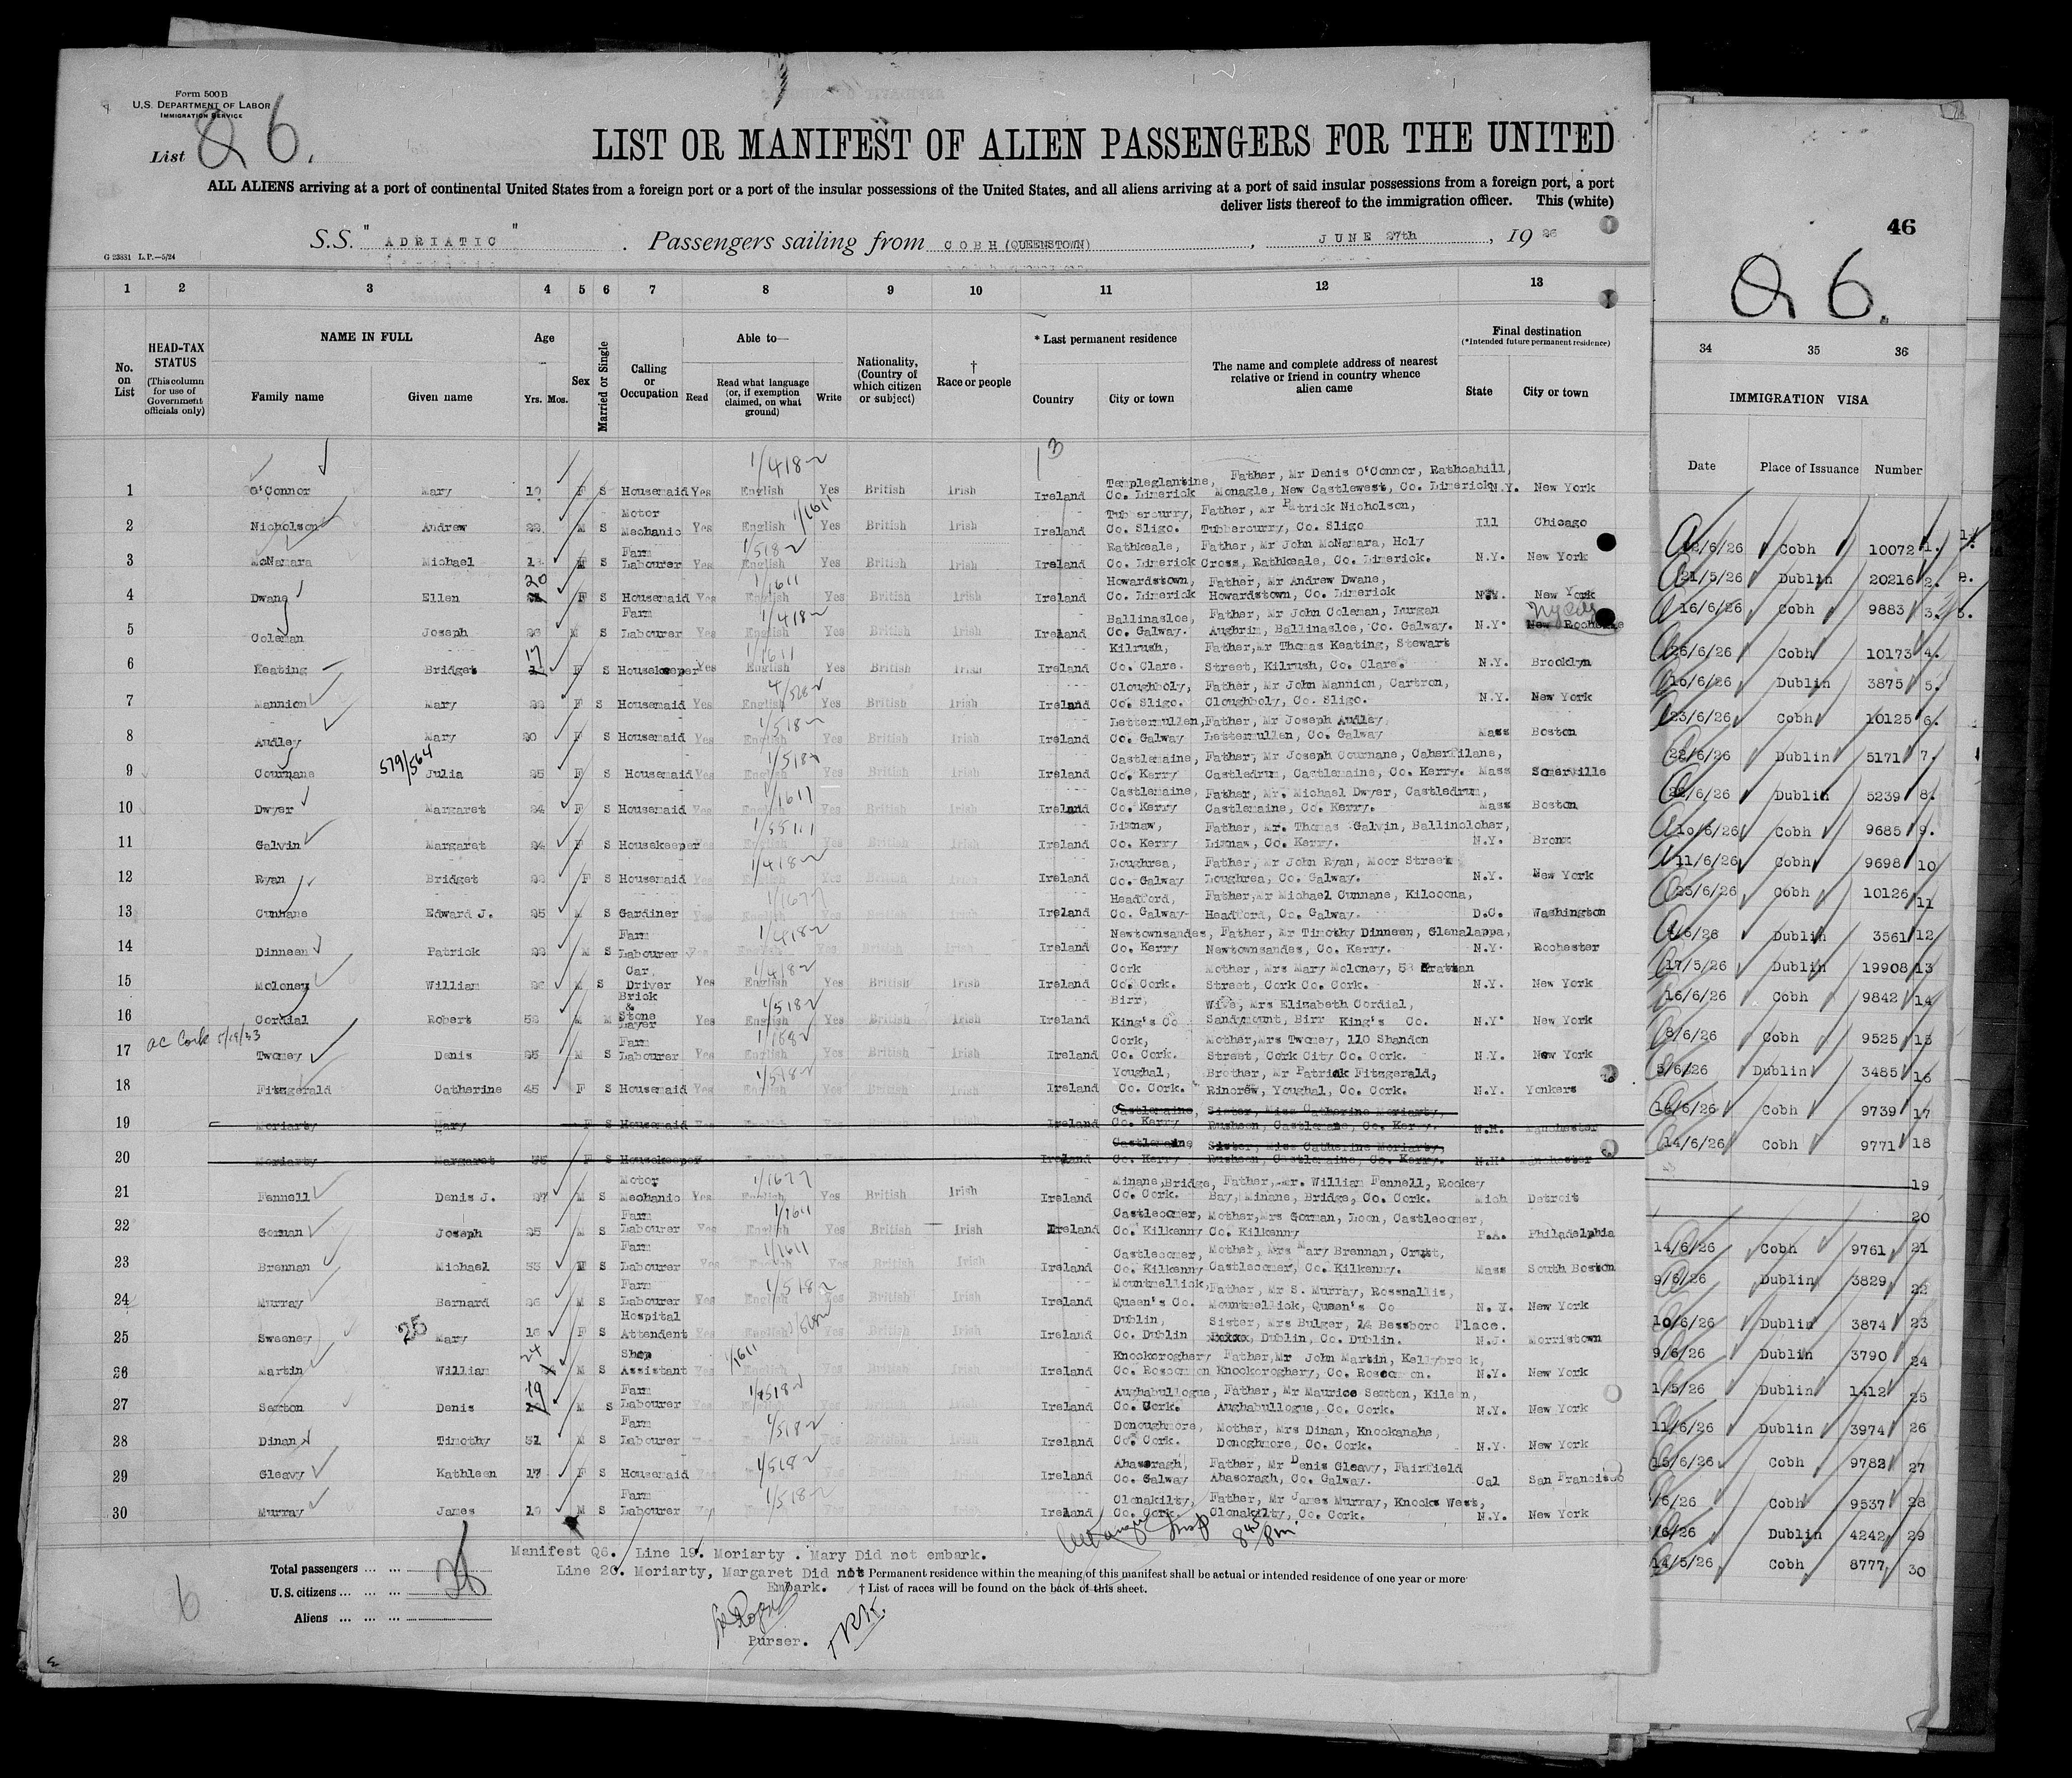 Form 500B
U.S. DEPARTMENT OF LABOR
IMMIGRATION SERVICE
List Q 6.
LIST OR MANIFEST OF ALIEN PASSENGERS FOR THE UNITED
ALL ALIENS arriving at a port of continental United States from a foreign port or a port of the insular possessions of the United States, and all aliens arriving at a port of said insular possessions from a foreign port, a port
deliver lists thereof to the immigration officer. This (white)
S.S. "ADRIATIC". Passengers sailing from COBH (QUEENSTOWN), JUNE 27th, 1926
G 23831 L.P.—5/24
46
Q 6.
1 2 3 4 5 6 7 8 9 10 11 12 13
34 35 36
No. on List
HEAD-TAX STATUS (This column for use of Government officials only)
NAME IN FULL
Family name Given name
Age
Yrs. Mos.
Sex
Married or Single
Calling or Occupation
Able to—
Read Read what language (or, if exemption claimed, on what ground) Write
Nationality, (Country of which citizen or subject)
† Race or people
* Last permanent residence
Country City or town
The name and complete address of nearest relative or friend in country whence alien came
Final destination
(*Intended future permanent residence)
State City or town
IMMIGRATION VISA
Date Place of Issuance Number
1 O'Connor Mary F S Housemaid Yes English Yes British Irish Ireland Templeglantine, Co. Limerick Father, Mr Denis O'Connor, Rathcahill, Monagle, New Castlewest, Co. Limerick N.Y. New York
2 Nicholson Andrew M S Motor Mechanic Yes English Yes British Irish Ireland Tubbercurry, Co. Sligo. Father, Mr Patrick Nicholson, Tubbercurry, Co. Sligo Ill Chicago
3 McNamara Michael M S Farm Labourer Yes English Yes British Irish Ireland Rathkeale, Co. Limerick Father, Mr John McNamara, Holy Cross, Rathkeale, Co. Limerick. N.Y. New York
4 Dwane Ellen 20 F S Housemaid Yes English Yes British Irish Ireland Howardstown, Co. Limerick Father, Mr Andrew Dwane, Howardstown, Co. Limerick N.Y. New York
5 Coleman Joseph M S Farm Labourer Yes English Yes British Irish Ireland Ballinasloe, Co. Galway. Father, Mr John Coleman, Lurgan Aughrim, Ballinasloe, Co. Galway. N.Y. New Rochelle
6 Keating Bridget 17 F S Housekeeper Yes English Yes British Irish Ireland Kilrush, Co. Clare. Father, Mr Thomas Keating, Stewart Street, Kilrush, Co. Clare. N.Y. Brooklyn
7 Mannion Mary F S Housemaid Yes English Yes British Irish Ireland Cloughboly, Co. Sligo. Father, Mr John Mannion, Cartron, Cloughboly, Co. Sligo. N.Y. New York
8 Audley Mary 20 F S Housemaid Yes English Yes British Irish Ireland Lettermullen, Co. Galway Father, Mr Joseph Audley, Lettermullen, Co. Galway Mass Boston
9 Cournane 579/564 Julia 25 F S Housemaid Yes English Yes British Irish Ireland Castlemaine, Co. Kerry Father, Mr Joseph Cournane, Caherfilane, Castledrum, Castlemaine, Co. Kerry. Mass Somerville
10 Dwyer Margaret 24 F S Housemaid Yes English Yes British Irish Ireland Castlemaine, Co. Kerry Father, Mr. Michael Dwyer, Castledrum, Castlemaine, Co. Kerry. Mass Boston
11 Galvin Margaret 24 F S Housekeeper Yes English Yes British Irish Ireland Lixnaw, Co. Kerry Father, Mr. Thomas Galvin, Ballincloher, Lixnaw, Co. Kerry. N.Y. Bronx
12 Ryan Bridget F S Housemaid Yes English Yes British Irish Ireland Loughrea, Co. Galway Father, Mr John Ryan, Moor Street Loughrea, Co. Galway. N.Y. New York
13 Cunnane Edward J. 25 M S Gardiner Yes English Yes British Irish Ireland Headford, Co. Galway Father, Mr Michael Cunnane, Kilcoona, Headford, Co. Galway. D.C. Washington
14 Dinneen Patrick M S Farm Labourer Yes English Yes British Irish Ireland Newtownsandes, Co. Kerry Father, Mr Timothy Dinneen, Glenalappa, Newtownsandes, Co. Kerry. N.Y. Rochester
15 Moloney William 26 M S Car Driver Yes English Yes British Irish Ireland Cork Co. Cork. Mother, Mrs Mary Moloney, 58 Grattan Street, Cork Co. Cork. N.Y. New York
16 Cordial Robert M M Brick & Stone Layer Yes English Yes British Irish Ireland Birr, King's Co Wife, Mrs Elizabeth Cordial, Sandymount, Birr King's Co. N.Y. New York
17 Twomey Denis 25 M S Farm Labourer Yes English Yes British Irish Ireland Cork, Co. Cork. Mother, Mrs Twomey, 110 Shandon Street, Cork City Co. Cork. N.Y. New York
18 Fitzgerald Catherine 45 F S Housemaid Yes English Yes British Irish Ireland Youghal, Co. Cork. Brother, Mr Patrick Fitzgerald, Rincrew, Youghal, Co. Cork. N.Y. Yonkers
19 Moriarty Mary F S Housemaid Ireland Castlemaine, Co. Kerry Sister, Miss Catherine Moriarty, Dusheen, Castlemane, Co. Kerry. N.H. Manchester
20 Moriarty Margaret F S Housekeeper Ireland Castlemaine Co. Kerry Sister, Miss Catherine Moriarty, Dusheen, Castlemaine, Co. Kerry. N.H. Manchester
21 Fennell Denis J. 27 M S Motor Mechanic Yes English Yes British Irish Ireland Minane Bridge, Co. Cork. Father, Mr. William Fennell, Rookey Bay, Minane, Bridge, Co. Cork. Mich Detroit
22 Gorman Joseph 25 M S Farm Labourer Yes English Yes British Irish Ireland Castlecomer, Co. Kilkenny Mother, Mrs Gorman, Loon, Castlecomer, Co. Kilkenny P.A. Philadelphia
23 Brennan Michael 33 M S Farm Labourer Yes English Yes British Irish Ireland Castlecomer, Co. Kilkenny Mother, Mrs Mary Brennan, Crutt, Castlecomer, Co. Kilkenny. Mass South Boston
24 Murray Bernard 26 M S Farm Labourer Yes English Yes British Irish Ireland Mountmellick, Queen's Co. Father, Mr S. Murray, Rossnallis, Mountmellick, Queen's Co N.Y. New York
25 Sweeney 25 Mary F S Hospital Attendent Yes English Yes British Irish Ireland Dublin, Co. Dublin Sister, Mrs Bulger, 14 Bessboro Place. Dublin, Co. Dublin. N.J. Morristown
26 Martin William 24 M S Shop Assistant Yes English Yes Ireland Knockcroghery Co. Roscommon Father, Mr John Martin, Kellybrook, Knockcroghery, Co. Roscommon. N.Y. New York
27 Sexton Denis 19 M S Farm Labourer Yes English Yes Ireland Aughabullogue, Co. Cork. Father, Mr Maurice Sexton, Kilein, Aughabullogue, Co. Cork. N.Y. New York
28 Dinan Timothy 31 M S Farm Labourer Ireland Donoughmore, Co. Cork. Mother, Mrs Dinan, Knockanahe, Donoghmore, Co. Cork. N.Y. New York
29 Gleavy Kathleen 17 F S Housemaid Yes Ireland Ahascragh, Co. Galway Father, Mr Denis Gleavy, Fairfield Ahascragh, Co. Galway. Cal San Francisco
30 Murray James 19 M S Farm Labourer Ireland Clonakilty, Co. Cork. Father, Mr James Murray, Knocks West, Clonakilty, Co. Cork. N.Y. New York
22/6/26 Cobh 10072 1.
21/5/26 Dublin 20216 2.
16/6/26 Cobh 9883 3.
25/6/26 Cobh 10173 4.
15/6/26 Dublin 3875 5.
23/6/26 Cobh 10125 6.
22/6/26 Dublin 5171 7.
22/6/26 Dublin 5239 8.
10/6/26 Cobh 9685 9.
11/6/26 Cobh 9698 10
23/6/26 Cobh 10126 11
/6/26 Dublin 3561 12
17/5/26 Dublin 19908 13
16/6/26 Cobh 9842 14
8/6/26 Cobh 9525 15
5/6/26 Dublin 3485 16
14/6/26 Cobh 9739 17
14/6/26 Cobh 9771 18
19
20
14/6/26 Cobh 9761 21
9/6/26 Dublin 3829 22
10/6/26 Dublin 3874 23
9/6/26 Dublin 3790 24
1/5/26 Dublin 1412 25
11/6/26 Dublin 3974 26
15/6/26 Cobh 9782 27
/6/26 Cobh 9537 28
/6/26 Dublin 4242 29
14/5/26 Cobh 8777 30
Manifest Q6. Line 19. Moriarty. Mary Did not embark.
Line 20. Moriarty, Margaret Did not
Embark.
Total passengers
U.S. citizens
Aliens
* Permanent residence within the meaning of this manifest shall be actual or intended residence of one year or more
† List of races will be found on the back of this sheet.
Purser.
6